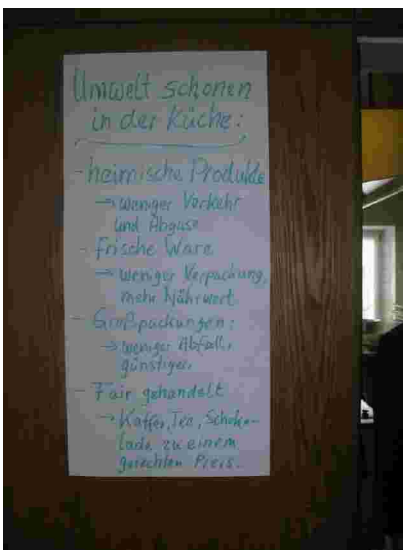 Umwelt schonen
in der Küche:
- heimische Produkte
→ weniger Verkehr
und Abgase
- Frische Ware
→ weniger Verpackung,
mehr Nährwert
- Großpackungen:
→ weniger Abfall,
günstiger
- Fair gehandelt
→ Kaffee, Tee, Schoko-
lade zu einem
gerechten Preis.